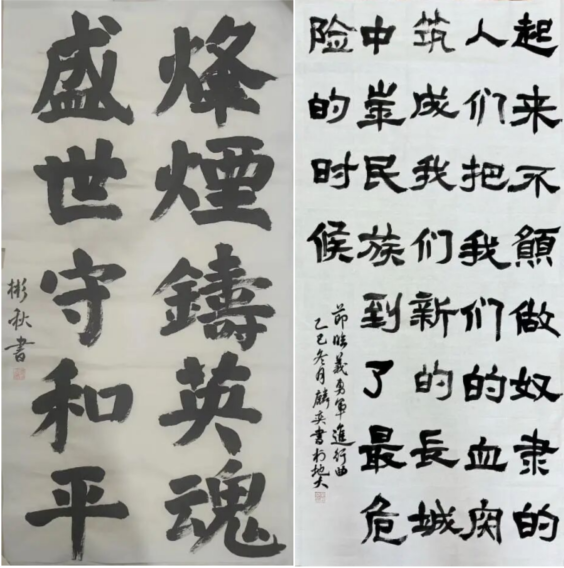 烽煙鑄英魂
盛世守和平
彬秋書
起来不願做奴隶的
人们把我们的血肉
筑成我们新的長城
中崋民族到了最危
险的时候
義勇軍進行曲
乙巳冬月麟奕書於地大